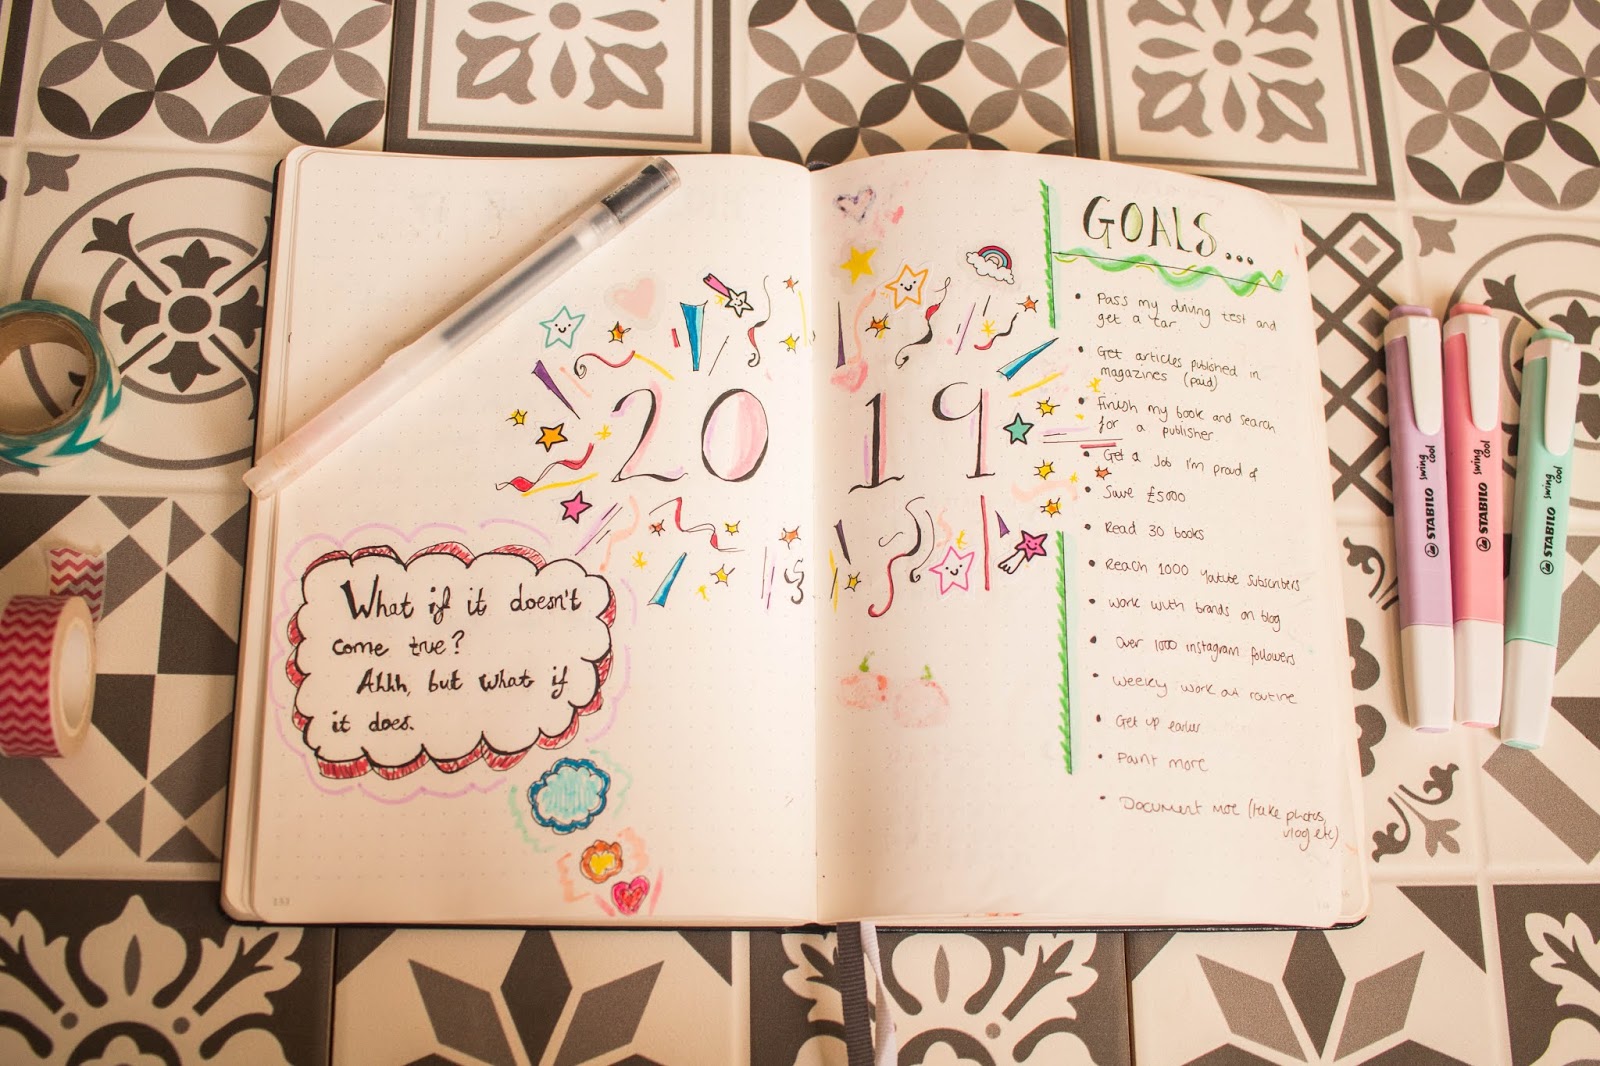 2019
What if it doesn't
come true?
Ahhh, but what if
it does.
GOALS...
• Pass my driving test and
get a car.
• Get articles published in
magazines (paid)
• Finish my book and search
for a publisher.
• Get a Job I'm proud of
• Save £5000
• Read 30 books
• Reach 1000 Youtube subscribers
• Work with brands on blog
• Over 1000 instagram followers
• Weekly work out routine
• Get up earlier
• Paint more
• Document more (take photos,
vlog etc)
STABILO swing cool
STABILO swing cool
STABILO swing cool